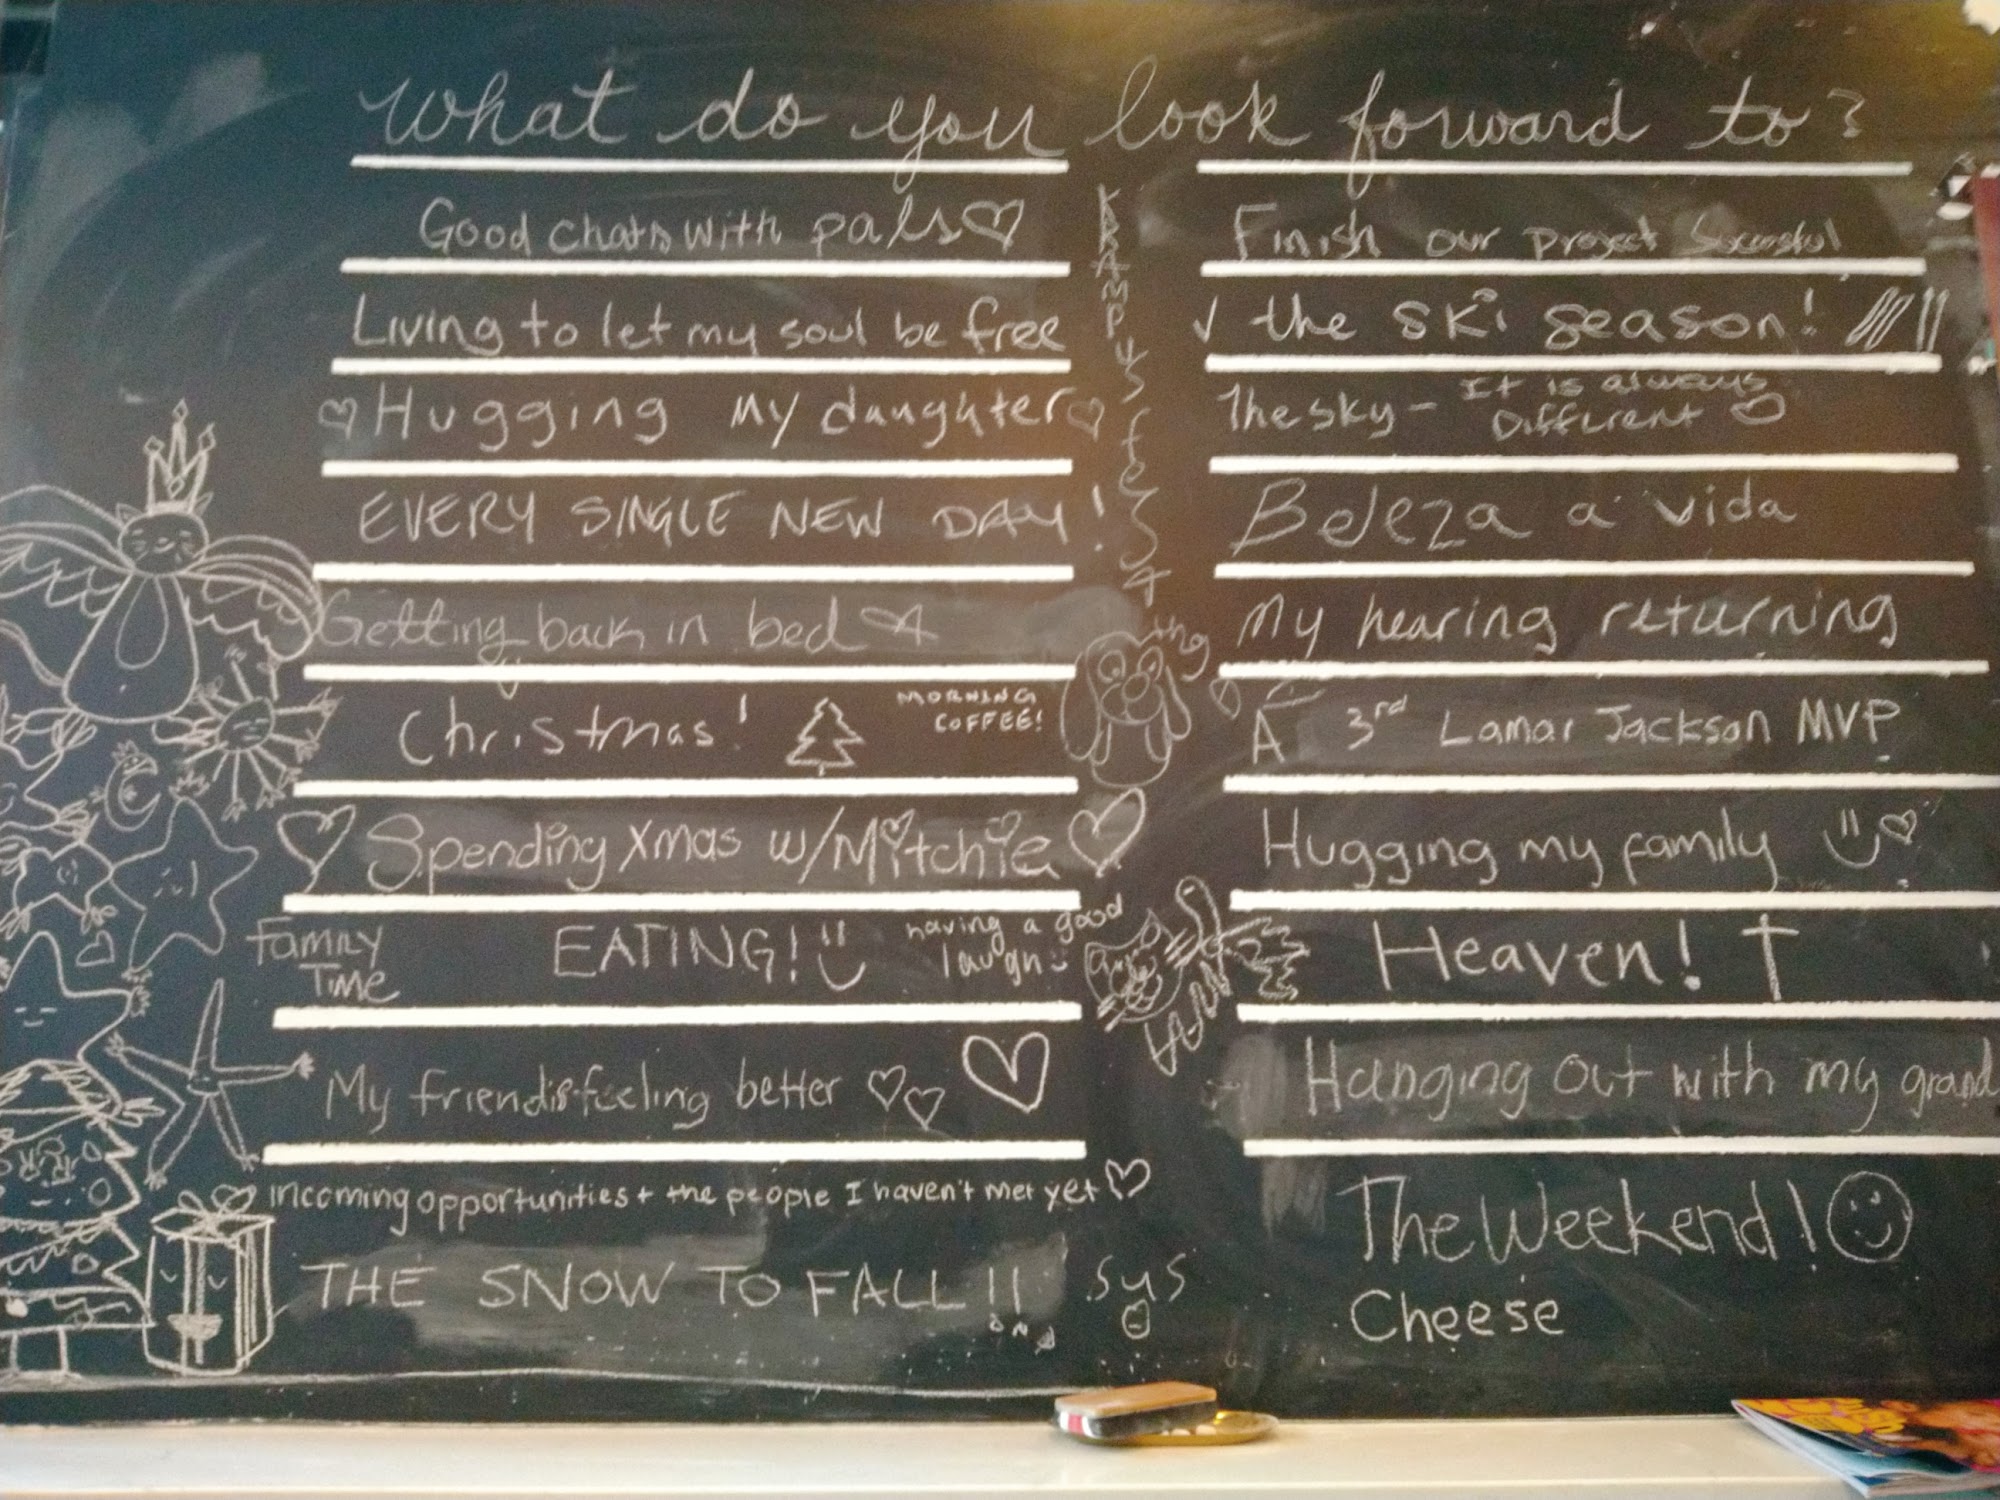 What do you look forward to?
Good chats with pals
Living to let my soul be free
Hugging my daughter
EVERY SINGLE NEW DAY!
Getting back in bed
Christmas!
MORNING
COFFEE!
Spending Xmas w/Mitchie
Family
Time
EATING!
having a good
laugh
My friend feeling better
incoming opportunities + the people I haven't met yet
THE SNOW TO FALL!!
Finish our project
the ski season!
The sky - It is always
Different
Beleza a vida
My hearing returning
A 3rd Lamar Jackson MVP
Hugging my family
Heaven!
Hanging out with my grand
The Weekend!
Cheese
sys